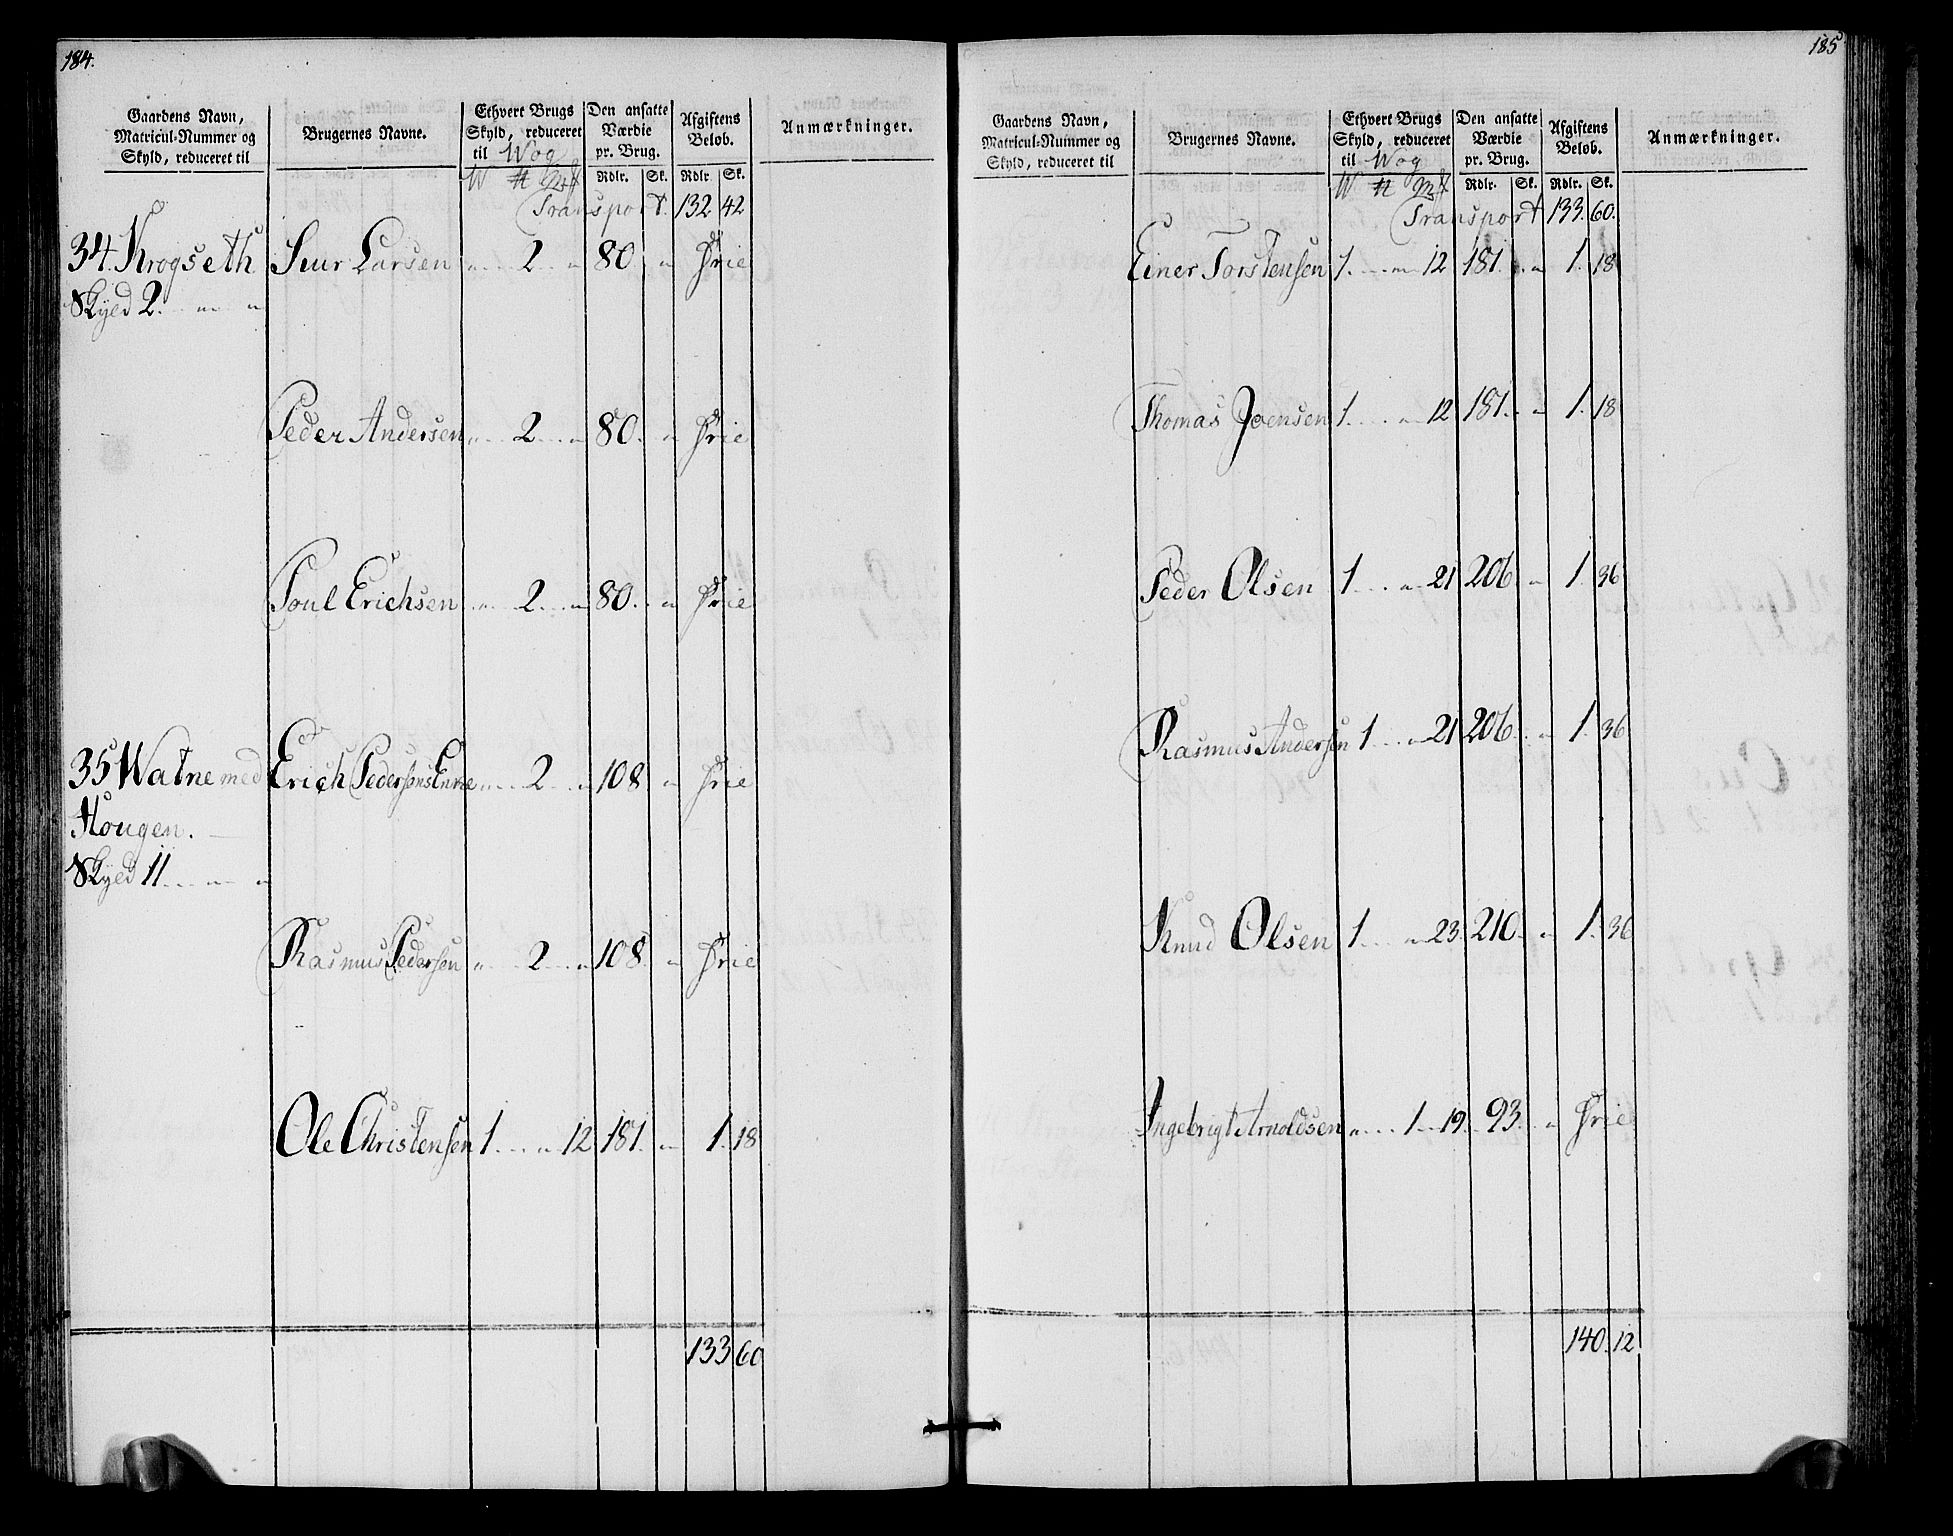 184.
Gaardens Navn, Matricul-Nummer og Skyld, reduceret til
Brugernes Navne.
Ethvert Brugs Skyld, reduceret til Wog
Den ansatte Værdie pr. Brug.
Afgiftens Beløb.
Anmærkninger.
Rdlr. Sk. Rdlr. Sk.
Transport. 132 42
34. Krogseth Siur Larsen " 2 " 80. " Frie
Skyld 2. " "
Peder Andersen " 2 " 80. " Frie
Poul Erichsen " 2 " 80. " Frie
35 Watne med Erich Pedersens Enke " 2 " 108 " Frie
Hougen.
Skyld 11. " "
Rasmus Pedersen " 2 " 108. " Frie
Ole Christensen 1 " 12 181. " 1. 18
133 60
185
Gaardens Navn, Matricul-Nummer og Skyld, reduceret til
Brugernes Navne.
Ethvert Brugs Skyld, reduceret til Wog
Den ansatte Værdie pr. Brug.
Afgiftens Beløb.
Anmærkninger.
Rdlr. Sk. Rdlr. Sk.
Transport 133. 60.
Einer Torstensen 1 " 12 181. " 1. 18
Thomas Joensen 1 " 12 181. " 1. 18
Peder Olsen 1 " 21 206 " 1. 36
Rasmus Andersen 1 " 21 206. " 1. 36
Knud Olsen 1 " 23. 210. " 1. 36
Ingebrigt Arnoldsen " 1 19. 93. " Frie
140. 12